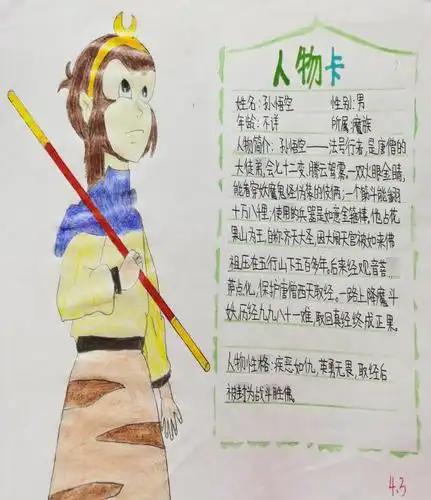 人物卡
姓名:孙悟空 性别:男
年龄:不详 所属:魔族
人物简介:孙悟空——法号行者,是唐僧的
大徒弟,会七十二变,腾云驾雾。一双火眼金睛,
能看穿妖魔鬼怪伪装的伎俩;一个筋斗能翻
十万八千里;使用的兵器是如意金箍棒。他占花
果山为王,自称齐天大圣,因大闹天宫被如来佛
祖压在五行山下五百多年。后来经观音菩
萨点化,保护唐僧西天取经。一路上降魔斗
妖,历经九九八十一难,取回真经终成正果。
人物性格:疾恶如仇,英勇无畏,取经后
被封为战斗胜佛。
4.3